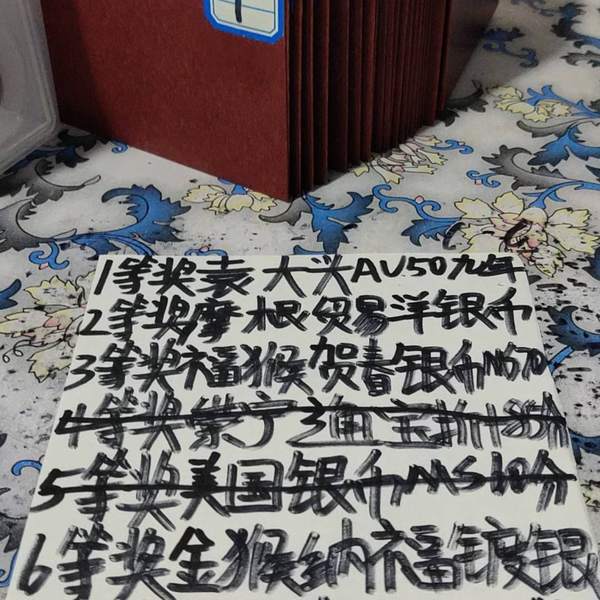 1
1等奖袁大头AU50九年
2等奖摩根贸易洋银币
3等奖福猴贺春银币MS70
4等奖崇宁通宝折十85分
5等奖美国银币MS60分
6等奖金猴纳福镀银